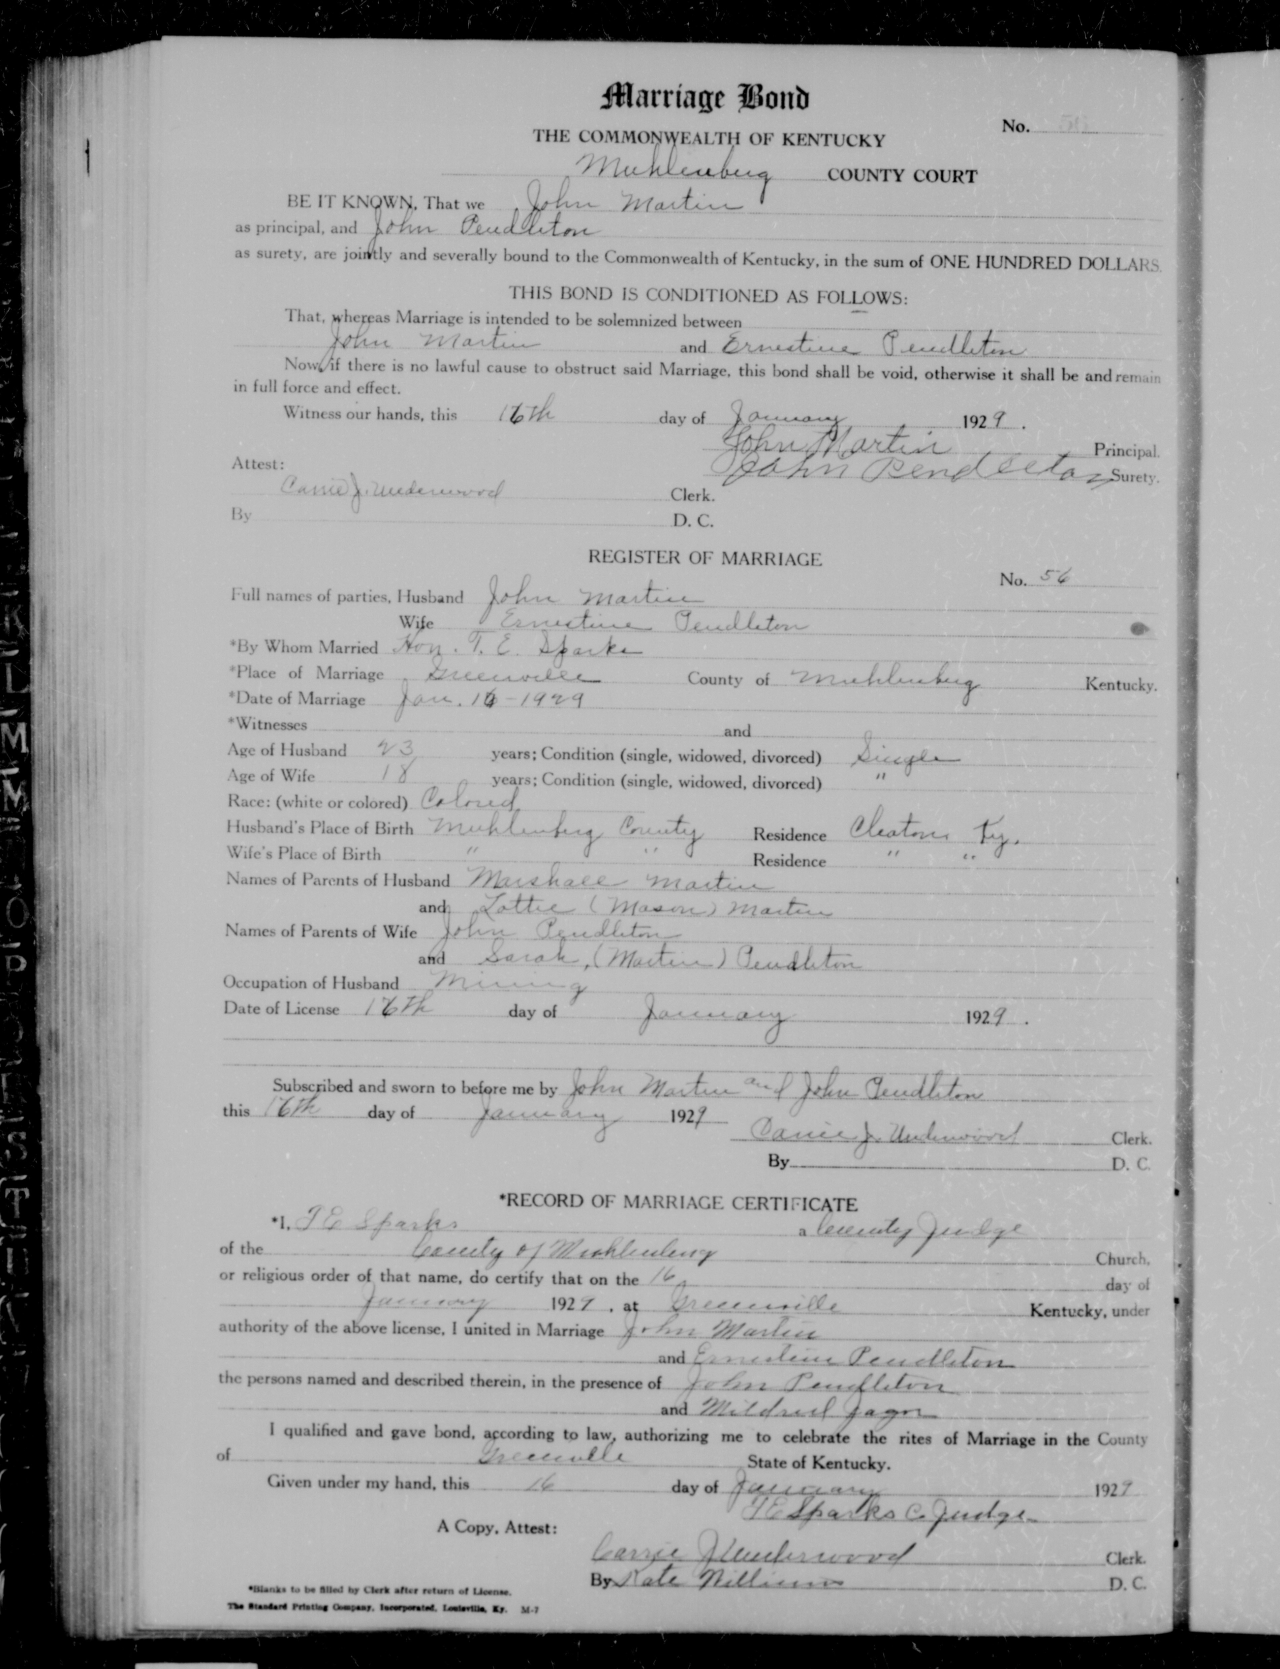 Marriage Bond
No.
THE COMMONWEALTH OF KENTUCKY
Muhlenberg COUNTY COURT
BE IT KNOWN, That we John Martin
as principal, and John Pendleton
as surety, are jointly and severally bound to the Commonwealth of Kentucky, in the sum of ONE HUNDRED DOLLARS.
THIS BOND IS CONDITIONED AS FOLLOWS:
That, whereas Marriage is intended to be solemnized between
John Martin and Ernestine Pendleton
Now, if there is no lawful cause to obstruct said Marriage, this bond shall be void, otherwise it shall be and remain
in full force and effect.
Witness our hands, this 16th day of January 1929.
John Martin Principal.
John Pendleton Surety.
Attest:
Carrie J. Underwood Clerk.
By D. C.
REGISTER OF MARRIAGE
No. 56
Full names of parties, Husband John Martin
Wife Ernestine Pendleton
*By Whom Married Hon. T. E. Sparks
*Place of Marriage Greenville County of Muhlenberg Kentucky.
*Date of Marriage Jan. 16-1929
*Witnesses and
Age of Husband 23 years; Condition (single, widowed, divorced) Single
Age of Wife 18 years; Condition (single, widowed, divorced) "
Race: (white or colored) Colored
Husband's Place of Birth Muhlenberg County Residence Cleaton Ky.
Wife's Place of Birth " " Residence " "
Names of Parents of Husband Marshall Martin
and Lottie (Mason) Martin
Names of Parents of Wife John Pendleton
and Sarah, (Martin) Pendleton
Occupation of Husband Mining
Date of License 16th day of January 1929.
Subscribed and sworn to before me by John Martin and John Pendleton
this 16th day of January 1929
Carrie J. Underwood Clerk.
By D. C.
*RECORD OF MARRIAGE CERTIFICATE
*I, T E Sparks a County Judge
of the County of Muhlenberg Church,
or religious order of that name, do certify that on the 16 day of
January 1929, at Greenville Kentucky, under
authority of the above license, I united in Marriage John Martin
and Ernestine Pendleton
the persons named and described therein, in the presence of John Pendleton
and Mildred Jagoe
I qualified and gave bond, according to law, authorizing me to celebrate the rites of Marriage in the County
of Greenville State of Kentucky.
Given under my hand, this 16 day of January 1929
T E Sparks C. Judge
A Copy, Attest:
Carrie J Underwood Clerk.
By Kate Williams D. C.
*Blanks to be filled by Clerk after return of License.
The Standard Printing Company, Incorporated, Louisville, Ky. M-7